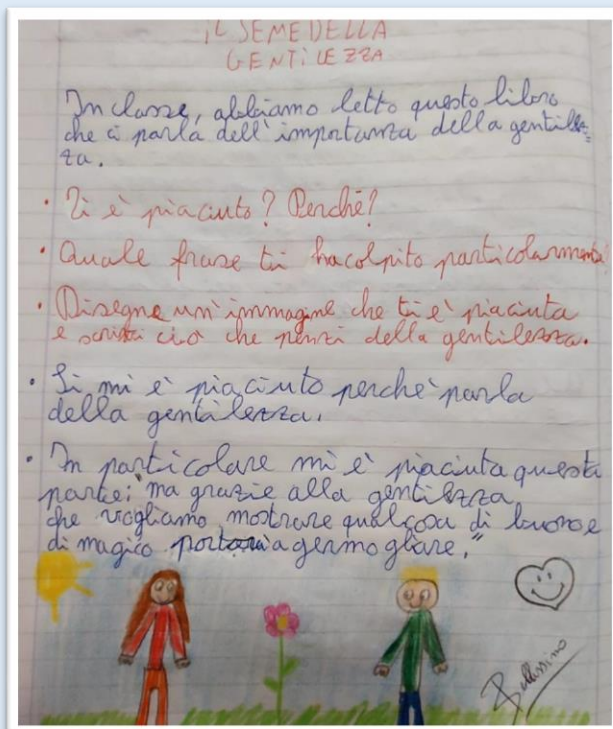 IL SEME DELLA
GENTILEZZA
In classe, abbiamo letto questo libro
che ci parla dell'importanza della gentilez=
za.
• Ti è piaciuto? Perché?
• Quale frase ti ha colpito particolarmente?
• Disegna un'immagine che ti è piaciuta
e scrivi ciò che pensi della gentilezza.
• Si mi è piaciuto perché parla
della gentilezza.
• In particolare mi è piaciuta questa
parte: "ma grazie alla gentilezza
che vogliamo mostrare qualcosa di buono e
di magico potrà a germogliare."
Bellissimo